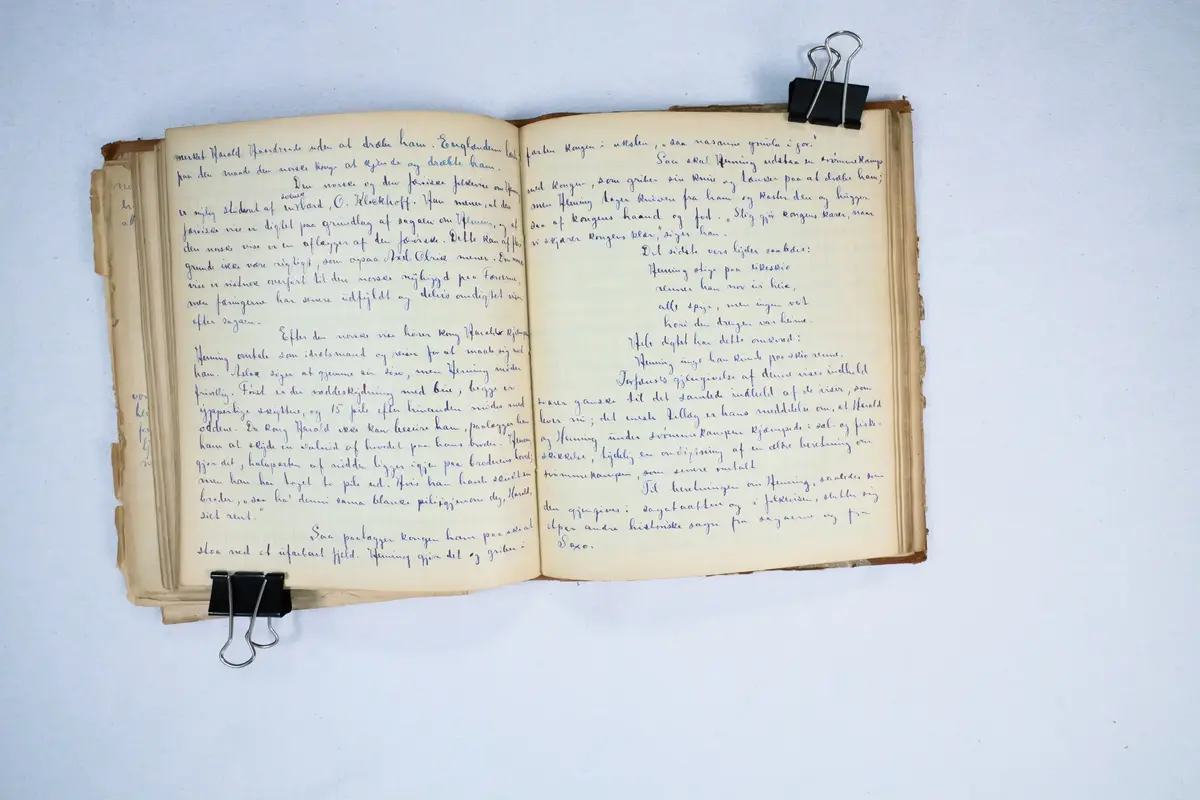 merket Harald Haardraade uden at dræbe ham. Englænderen
paa den maade den norske konge at kjende og dræbte ham.
Den norske og den færøiske folkevise om
er nylig studeret af svensk O. Klockhoff. Han mener, at den
færøiske vise er digtet paa grundlag af sagaen om Heming, og at
den norske vise er en aflægger af den færøiske. Dette kan af flere
grunde ikke være rigtigt, som ogsaa Axel Olrik mener. En norsk
vise er overført til den norske nybygd paa Færøerne,
men færingerne har senere udfyldt og delvis omdigtet visen
efter sagaen.
Efter den norske vise hører kong Harald
Heming omtale som idrætsmand og reiser for at maale sig med
ham. Aslak siger at gjemme sin søn, men Heming møder
frivillig. Først er der væddeskydning med bue, begge er
ypperlige skyttere, og 15 pile efter hinanden mødes med
oddene. Da kong Harald ikke kan beseire ham, paalægger han
ham at skyde en valnød af hovedet paa hans broder. Heming
gjør det, halvparten af nødden ligger igjen paa broderens hoved;
men han har taget to pile ud. Hvis han havde skudt sin
broder, „saa ha' denni sama blanke pili igjenom deg, Harald,
sict rent."
Saa paalægger kongen ham paa ski at
staa ned et ufarbart fjeld. Heming gjør det og griber i
farten kongen i akslen, „saa nasanne i jor."
Saa skal Heming udstaa en svømmekamp
med kongen, som griber sin kniv og tænker paa at dræbe ham;
men Heming tager kniven fra ham og kaster den og hugger
saa af kongens haand og fod. „Stig gjø kongens karer, naar
i skjærer kongens klær," siger han.
Det sidste vers lyder saaledes:
Heming stige paa skeiskio
renner han nor ivi heie,
alle spyr, men ingen veit
hori den drengen var heime.
Hele digtet har dette omkvæd:
Heming unge han kunde paa skio renne.
Torfæus's gjengivelse af denne vises indhold
svarer ganske til det samlede indhold af de viser, som
lever nu; det eneste tillæg er hans meddelelse om, at Harald
og Heming under svømmekampen kjæmpede i sæl- og fiske-
skikkelse, tydelig en omdigtning af en ældre beretning om
svømmekampen, som senere omtalt.
Til beretningen om Heming, saaledes som
den gjengives i sagataatten og i folkevisen, slutter sig
andre historiske sagn fra sagaerne og fra
Saxo.